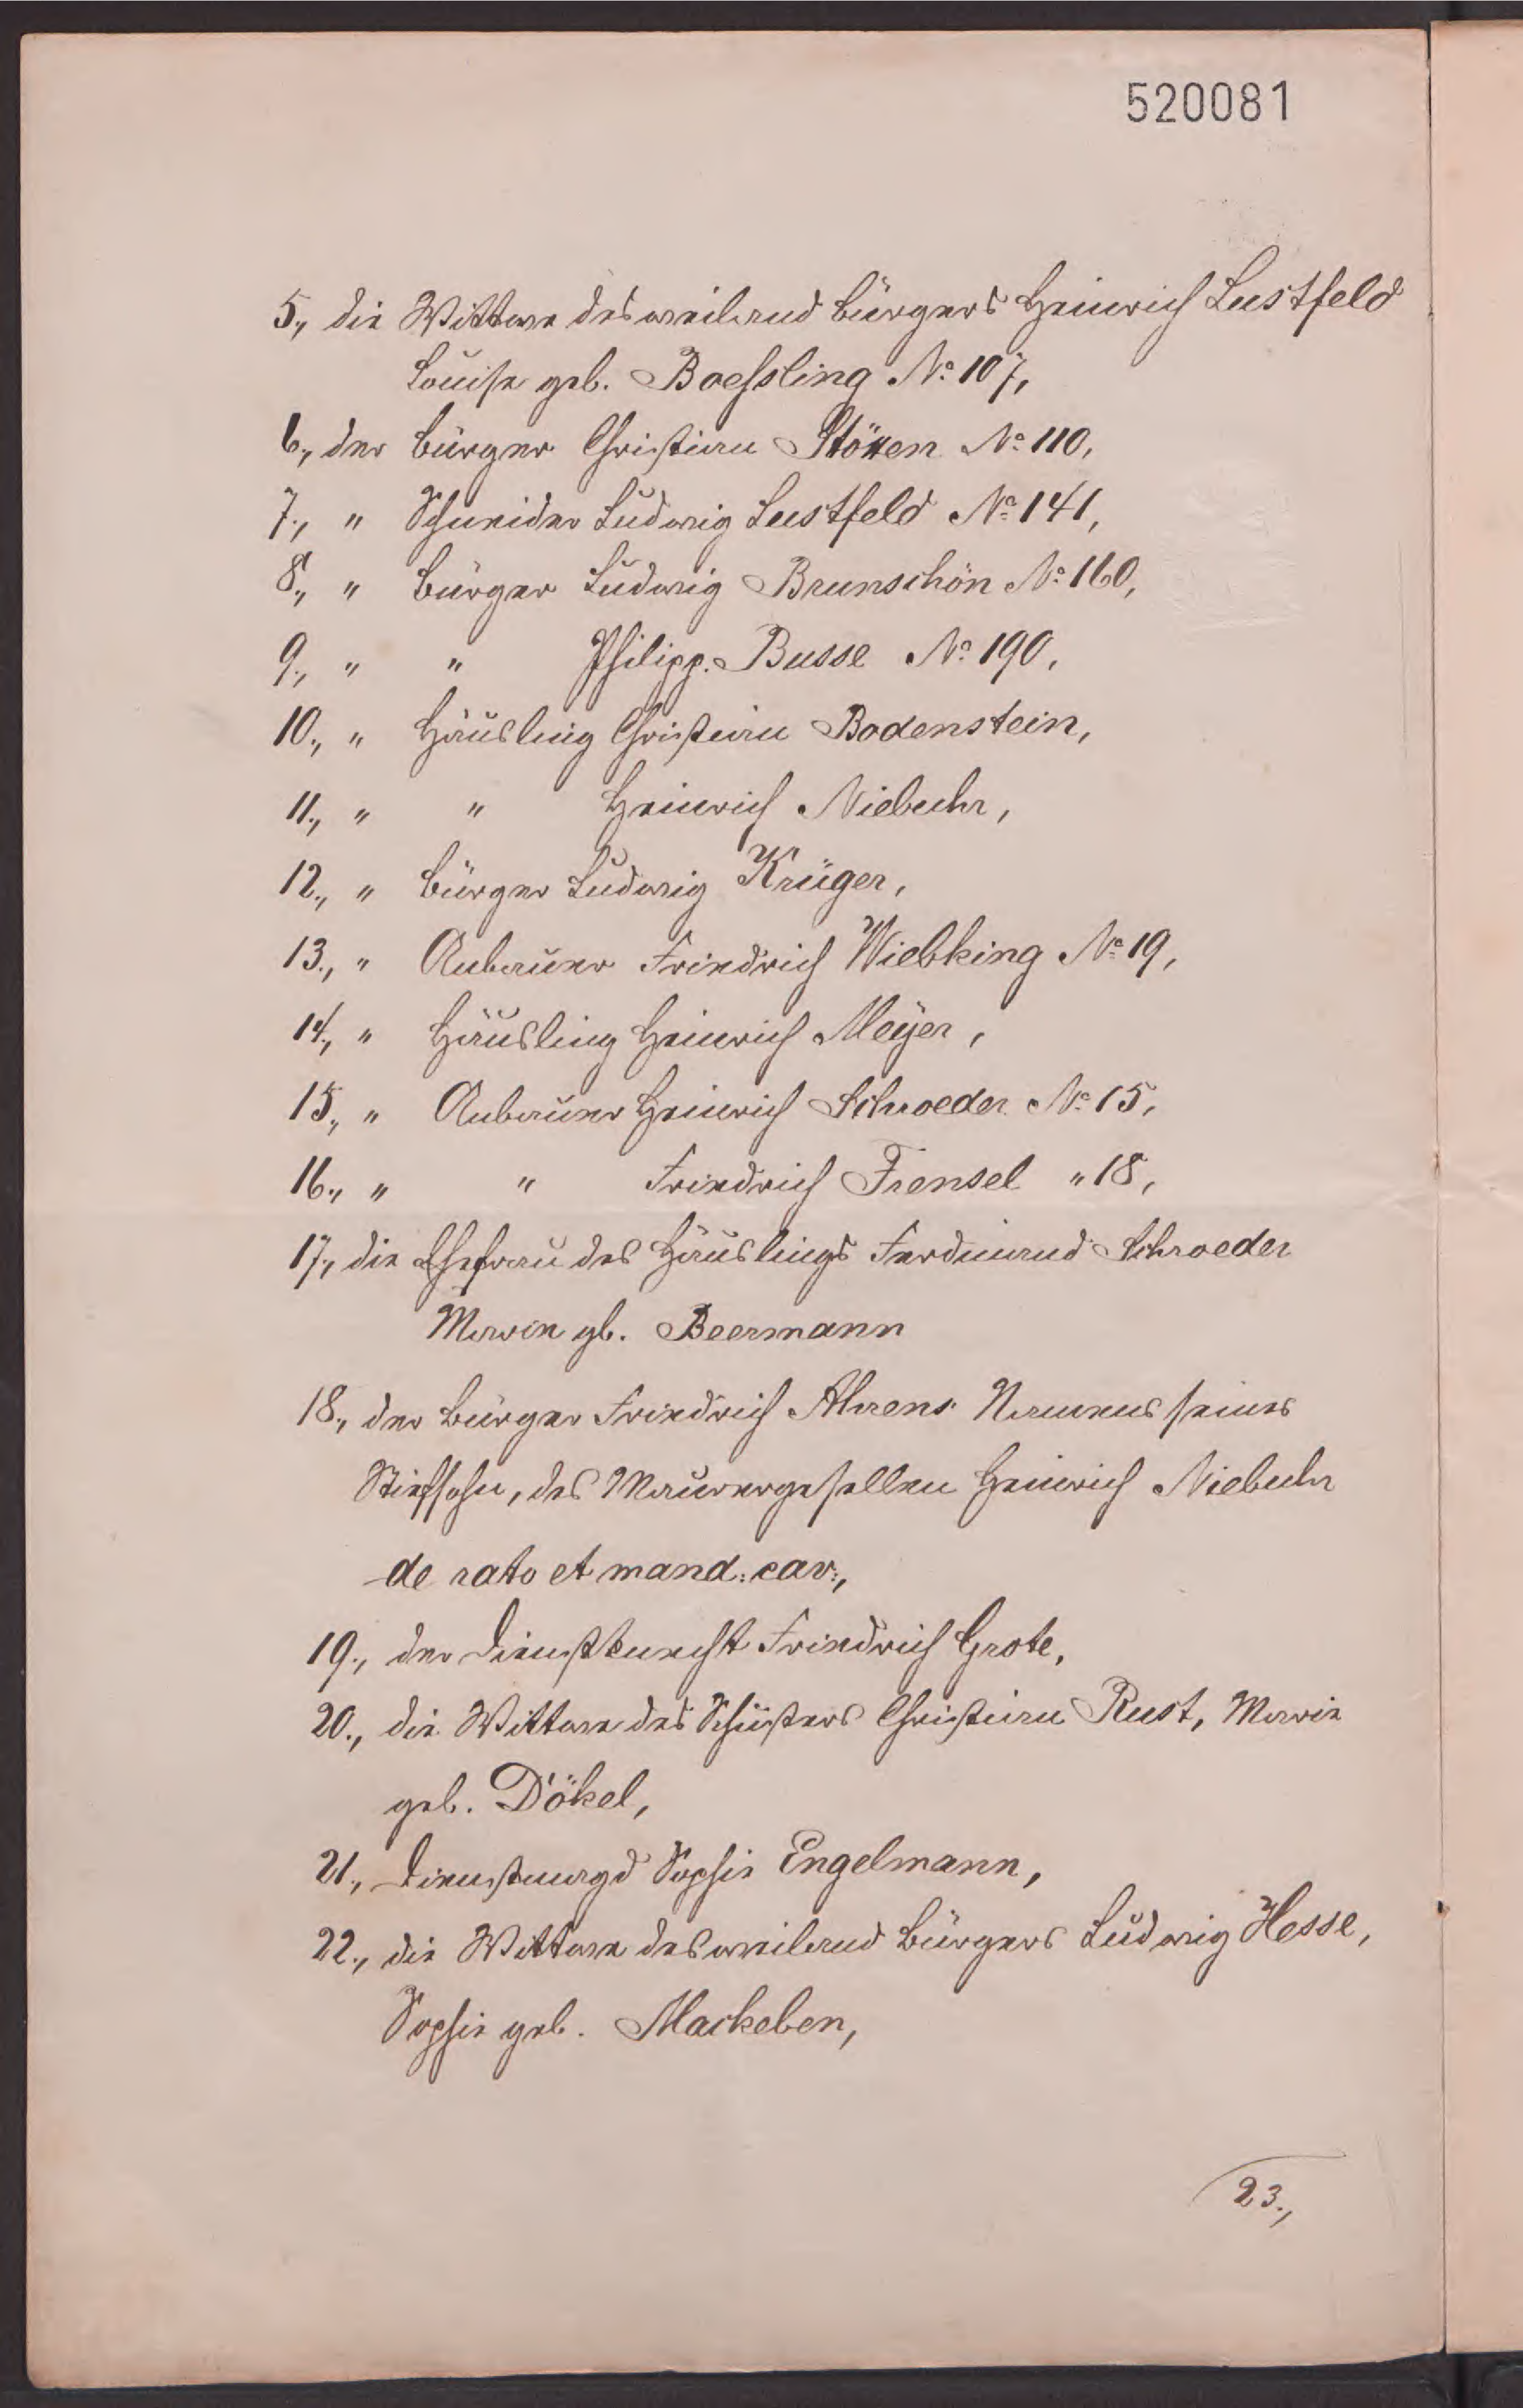 520081
5., die Wittwe des weiland Bürgers Heinrich Lustfeld
Louise geb. Boessling No. 107,
6., der Bürger Christian Stöxen No. 110,
7., " Schneider Ludwig Lustfeld No. 141,
8., " Bürger Ludwig Brunschön No. 160,
9., " " Philipp Busse No. 190,
10., " Häusling Christian Bodenstein,
11., " " Heinrich Niebuhr,
12., " Bürger Ludwig Krüger,
13., " Anbauer Friedrich Wiebking No. 19,
14., " Häusling Heinrich Meyer,
15., " Anbauer Heinrich Schroeder No. 15,
16., " " Friedrich Frensel " 18,
17., die Ehefrau des Häuslings Ferdinand Schroeder
Marie gb. Beermann
18., der Bürger Friedrich Ahrens Namens seines
Stiefsohn, des Maurergesellen Heinrich Niebuhr
de rato et mand: cav:,
19., der Dienstknecht Friedrich Grote,
20., die Wittwe des Schusters Christian Rust, Marie
geb. Dökel,
21., Dienstmagd Sophie Engelmann,
22., die Wittwe des weiland Bürgers Ludwig Hesse,
Sophie geb. Mackeben,
23.,